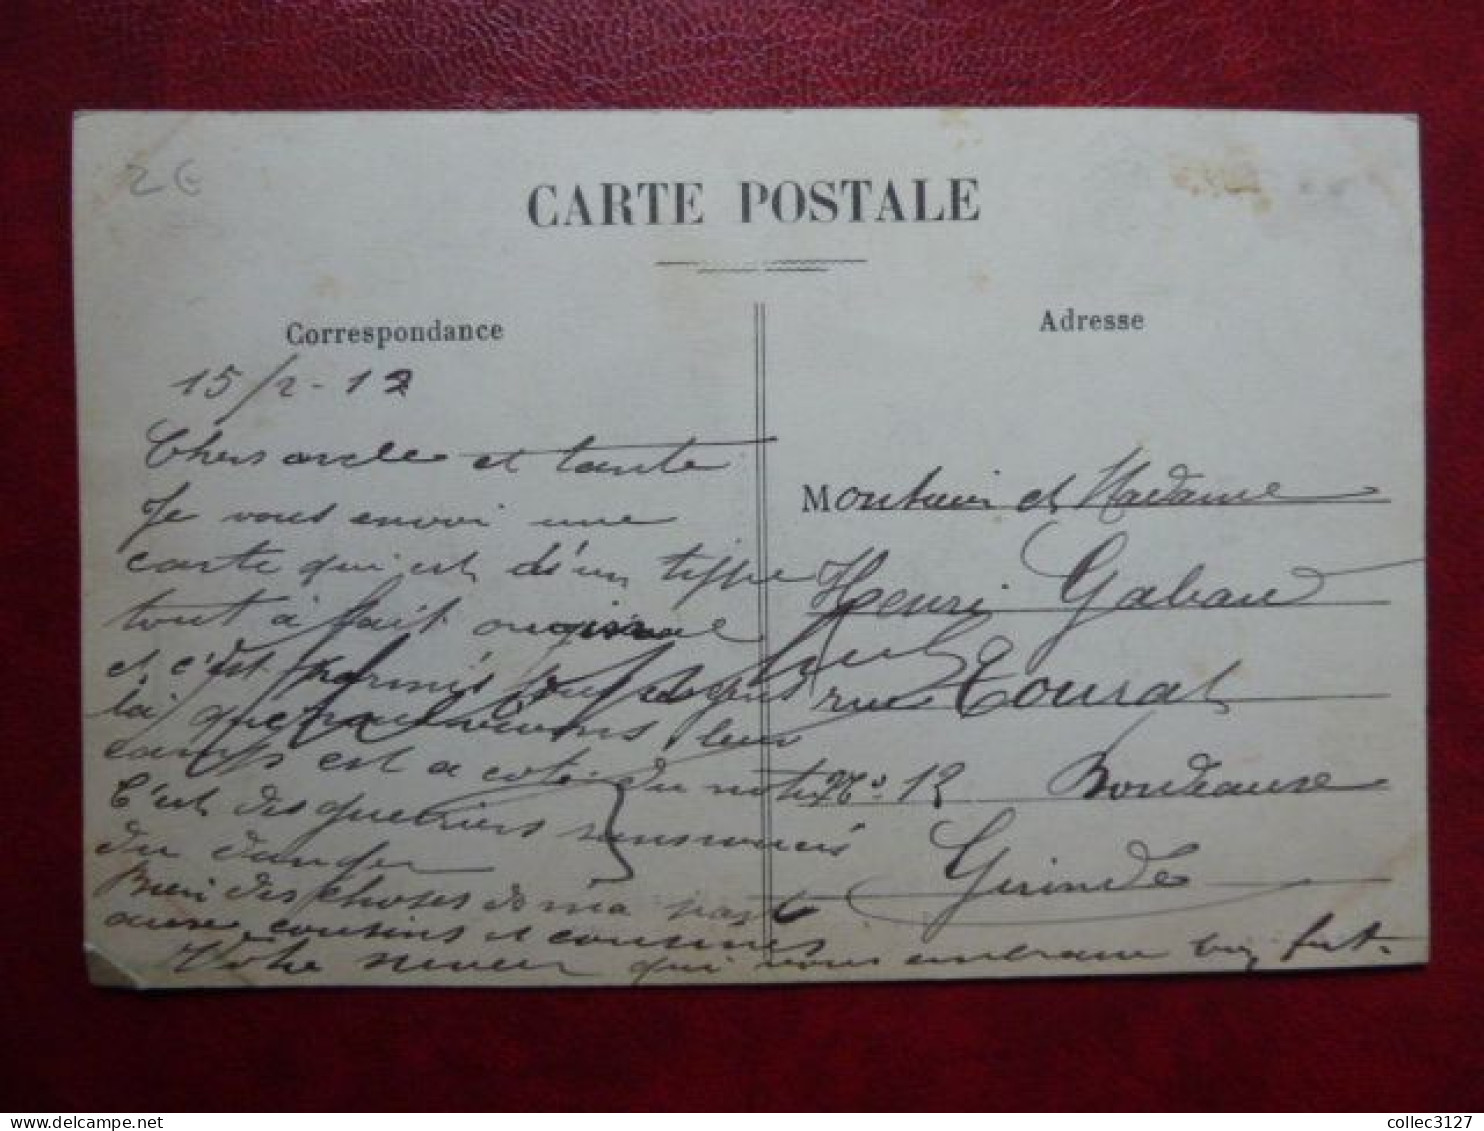 2€
CARTE POSTALE
Correspondance
15/2-12
Chers oncle et tante
Je vous envoi une
carte qui est dé'un tippe
tout à fait original
et c'est parmis
là que nous vivons leur
camps est a coté du notre
C'est des guerriers renommés
du danger
Bien des choses de ma part
aux cousins et cousines
Votre neveu qui vous embrasse bien fort.
Adresse
Monsieur et Madame
Henri Gabau
rue Tourat
No 12 Bordeaux
Gironde
delcampe.net
collec3127